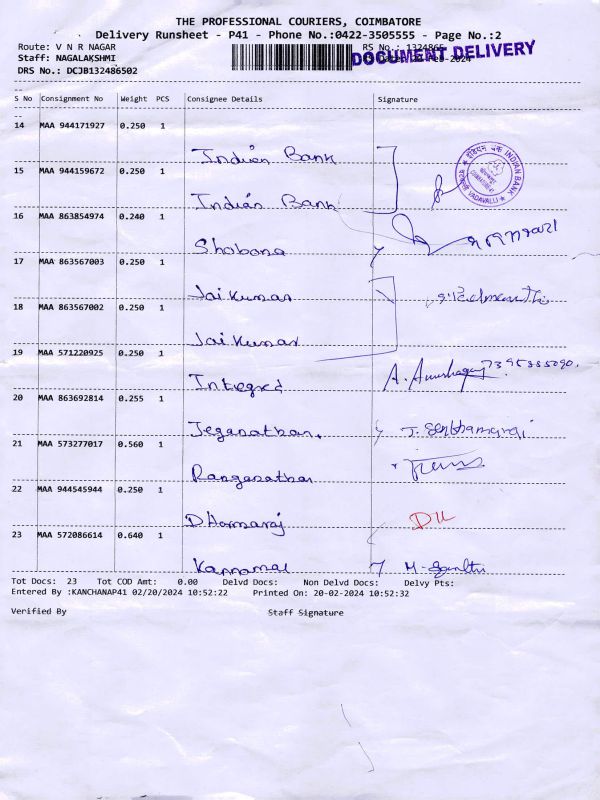 THE PROFESSIONAL COURIERS, COIMBATORE
Delivery Runsheet - P41 - Phone No.:0422-3505555 - Page No.:2
Route: V N R NAGAR
RS No.: 1324865
DOCUMENT DELIVERY
Staff: NAGALAKSHMI
DRS No.: DCJB132486502
S No Consignment No Weight PCS Consignee Details Signature
14 MAA 944171927 0.250 1
Indian Bank
15 MAA 944159672 0.250 1
Indian Bank
INDIAN BANK
VADAVALLI
16 MAA 863854974 0.240 1
Shobana
17 MAA 863567003 0.250 1
Jai Kumar
18 MAA 863567002 0.250 1
Jai Kumar
19 MAA 571220925 0.250 1
Integred A.
20 MAA 863692814 0.255 1
Jeganathan. J.
21 MAA 573277017 0.560 1
Ranganathan
22 MAA 944545944 0.250 1
Dharmaraj
23 MAA 572086614 0.640 1
Kannamal M.
Tot Docs: 23 Tot COD Amt: 0.00 Delvd Docs: Non Delvd Docs: Delvy Pts:
Entered By :KANCHANAP41 02/20/2024 10:52:22 Printed On: 20-02-2024 10:52:32
Verified By Staff Signature